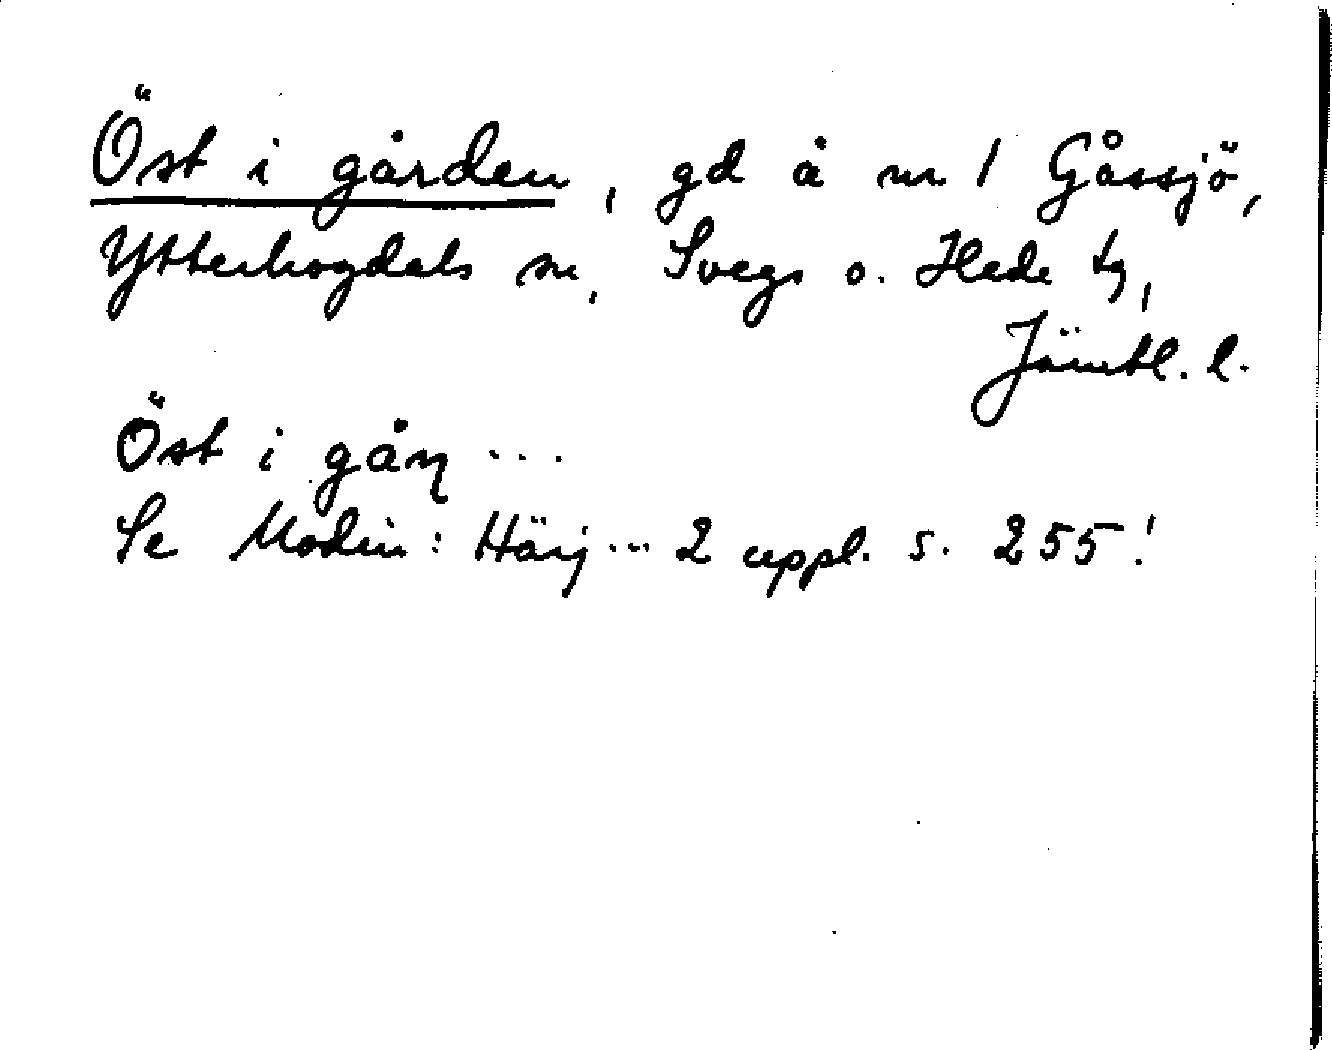 Öst i gården, gd å nr 1 Gåssjö,
Ytterhogdals sn, Svegs o. Hede tg,
Jämtl. l.
Öst i gåɳ ...
Se Modin: Härj ... 2 uppl. s. 255!